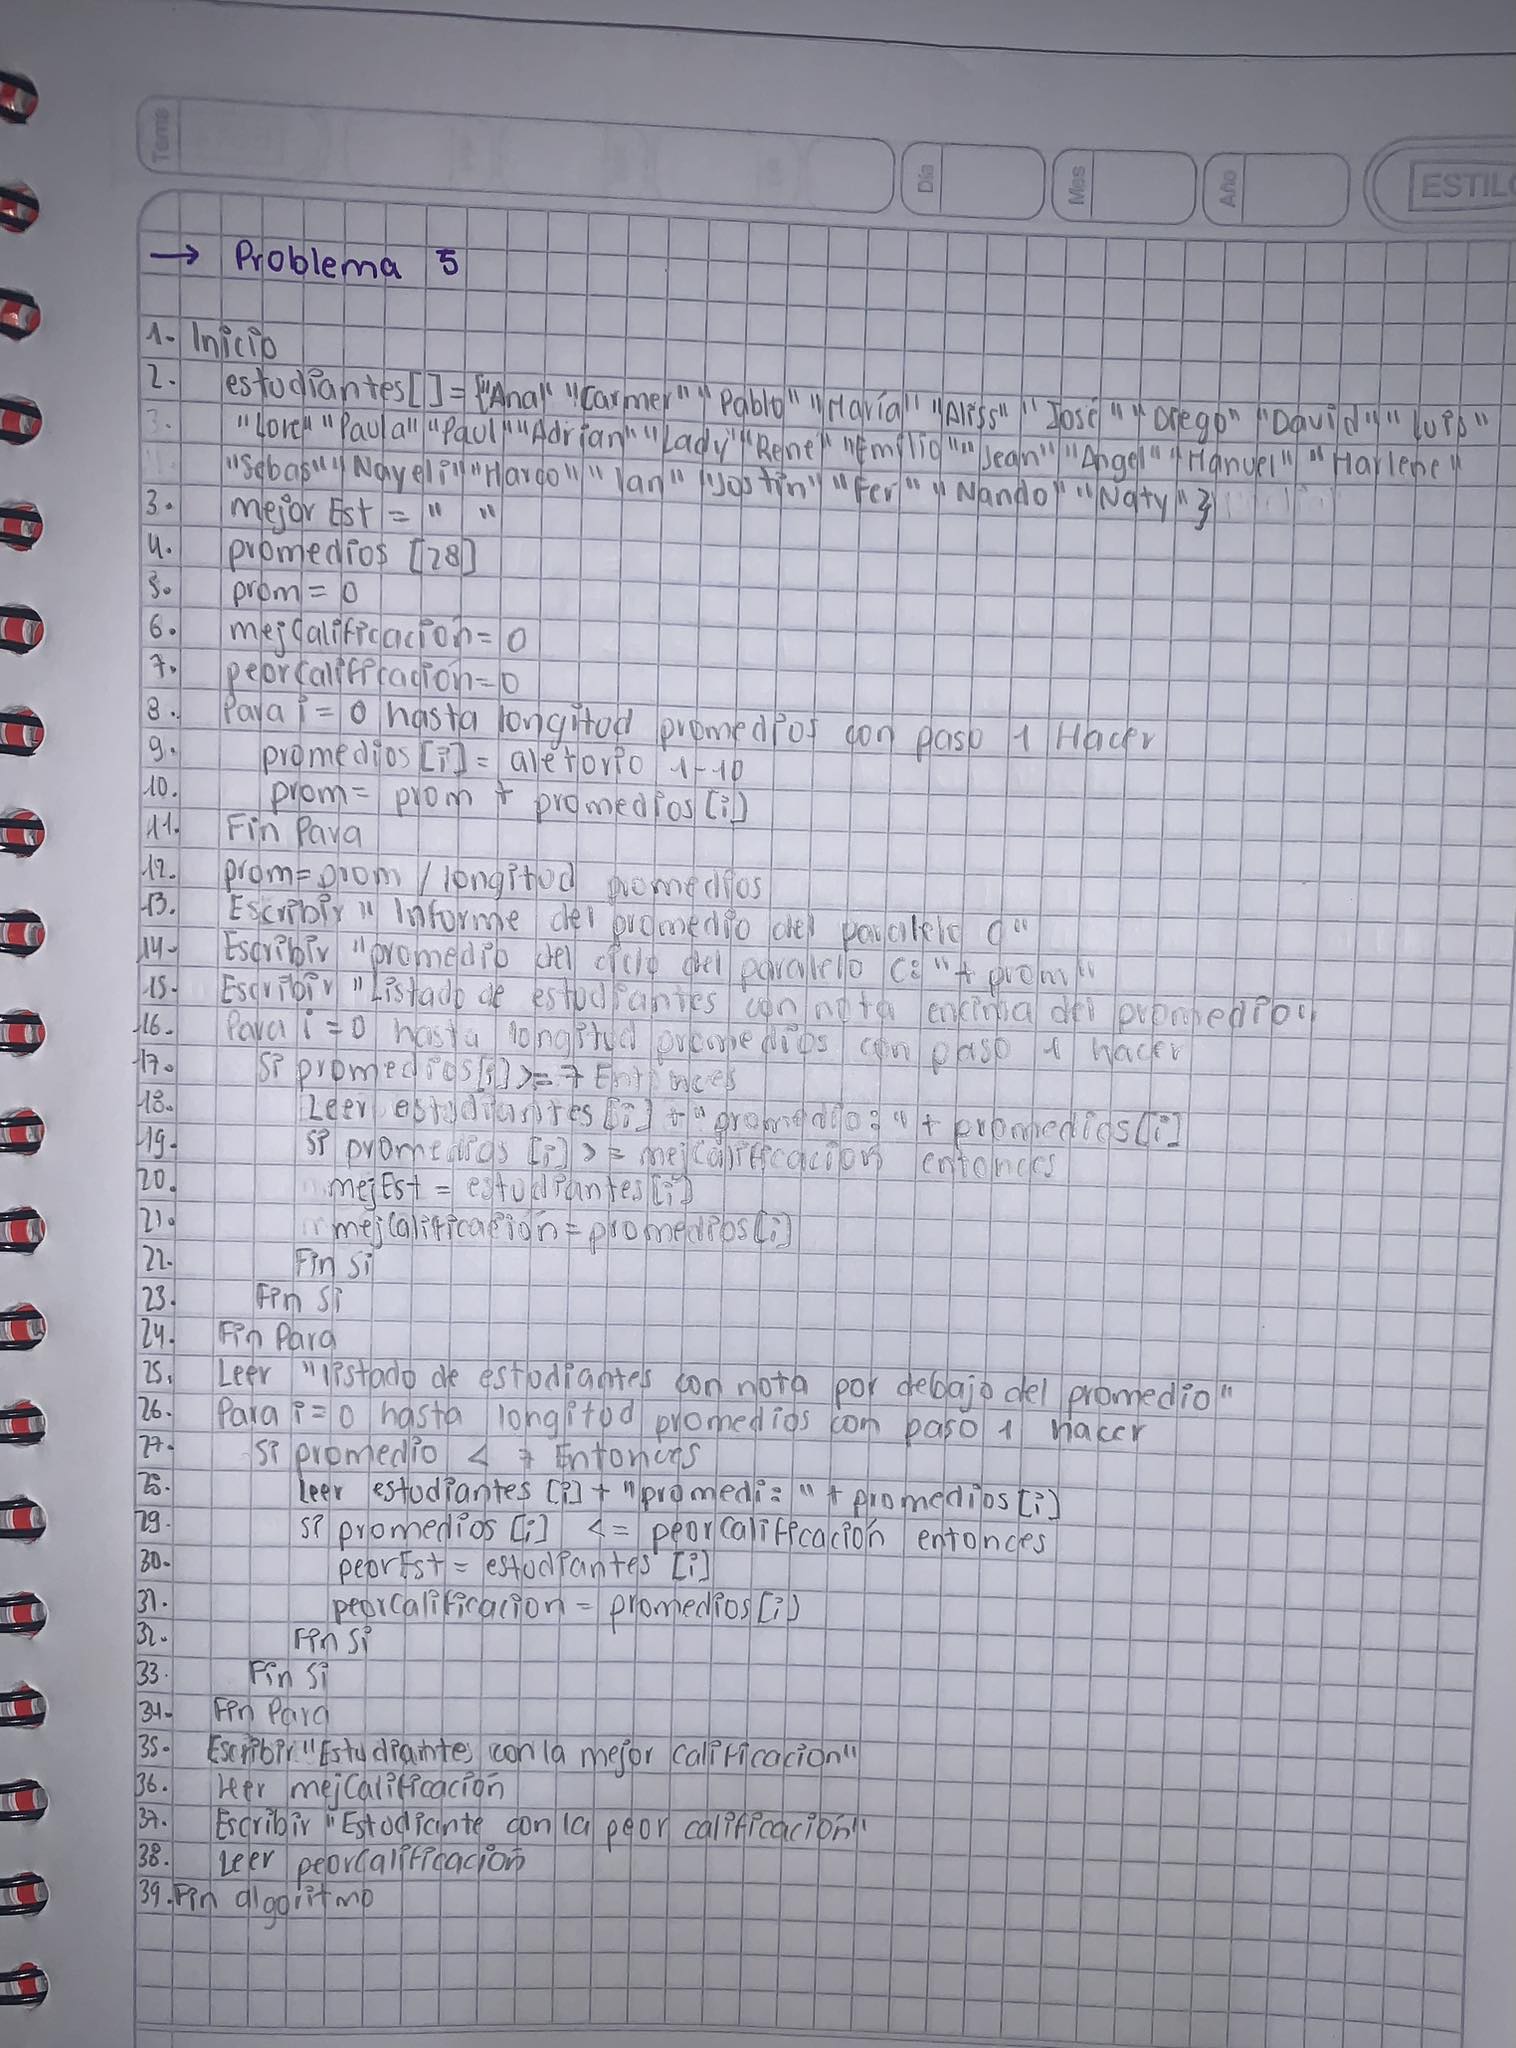 Tema
Día
Mes
Año
ESTILO
→ Problema 5
1. Inicio
2. estudiantes[] = {"Ana" "Carmen" "Pablo" "María" "Aliss" "José" "Diego" "David" "Luis"
3. "Lore" "Paula" "Paul" "Adrian" "Lady" "Rene" "Emilio" "Jean" "Angel" "Manuel" "Marlene"
"Sebas" "Nayeli" "Marco" "Ian" "Jostin" "Fer" "Nando" "Naty" }
3. mejor Est = " "
4. promedios [28]
5. prom = 0
6. mejCalificación = 0
7. peorCalificación = 0
8. Para i = 0 hasta longitud promedios con paso 1 Hacer
9. promedios [i] = aletorio 1-10
10. prom = prom + promedios [i]
11. Fin Para
12. prom = prom / longitud promedios
13. Escribir "Informe del promedio del paralelo C"
14. Escribir "promedio del ciclo del paralelo C: "+ prom"
15. Escribir "Listado de estudiantes con nota encima del promedio"
16. Para i = 0 hasta longitud promedios con paso 1 hacer
17. Si promedios[i] >= 7 Entonces
18. Leer estudiantes [i] + "promedio: " + promedios[i]
19. Si promedios [i] >= mejCalificación entonces
20. mejEst = estudiantes[i]
21. mejCalificación = promedios[i]
22. Fin Si
23. Fin Si
24. Fin Para
25. Leer "listado de estudiantes con nota por debajo del promedio"
26. Para i = 0 hasta longitud promedios con paso 1 hacer
27. Si promedio < 7 Entonces
28. Leer estudiantes [i] + "promedi: " + promedios [i]
29. Si promedios [i] <= peorCalificación entonces
30. peorEst = estudiantes [i]
31. peorcalificacion = promedios[i]
32. Fin Si
33. Fin Si
34. Fin Para
35. Escribir "Estudiante con la mejor calificacion"
36. Leer mejCalificación
37. Escribir "Estudiante con la peor calificación"
38. Leer peorCalificación
39. Fin algoritmo